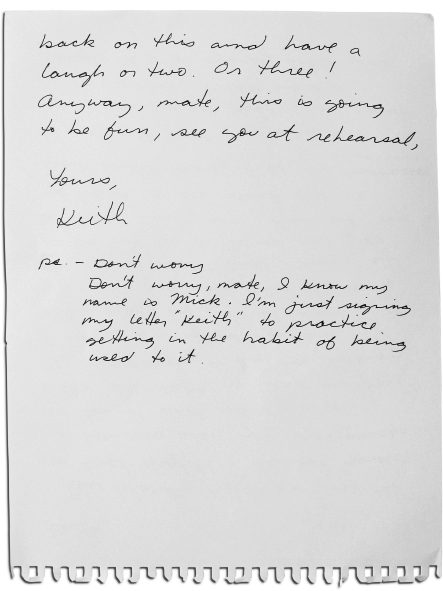 back on this and have a
laugh or two. Or three!
Anyway, mate, this is going
to be fun, see you at rehearsal,
Yours,
Keith
ps. - Don't worry
Don't worry, mate, I know my
name is Mick. I'm just signing
my letter "Keith" to practice
getting in the habit of being
used to it.